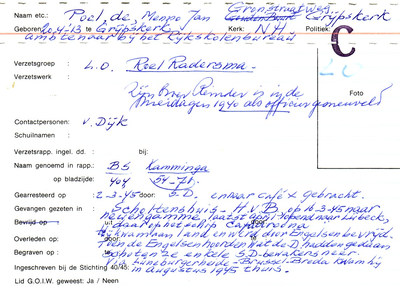 Naam etc.: Poel, de, Menno Jan Grijpskerk
Geboren: 20-4-13 te Grijpskerk Kerk: N H Politiek:
ambtenaar bij het Rijkskolenbureau
C
Verzetsgroep : L.O. Roel Radersma.
L O
Verzetswerk :
Zijn broer Reinder is in de
Meidagen 1940 als officier gesneuveld
Foto
Contactpersonen: v. Dijk
Schuilnaam :
Verzetsrapp. ingel. dd. : bij:
Naam genoemd in rapp.: BS Kamminga
op bladzijde: 404 54-71.
Gearresteerd op : 2-3-45 door: S.D. en naar café x gebracht.
Gevangen gezeten in : Scholtenshuis - H.v.B op 16-3-45 naar
Neuengamme, laatst april lopend naar Lübeck,
Bevrijd op : daar op het schip Cap Arcona
kwam aan land en werd door Engelsen bevrijd.
Overleden op : toen de Engelsen hoorden wat de D. hadden gedaan
Begraven op : schoten ze enkele S.D-bewakers neer.
via Lüneburgerheide - Brussel-Breda kwam hij
Ingeschreven bij de Stichting 40/45: in augustus 1945 thuis.
Lid G.O.I.W. geweest: Ja / Neen